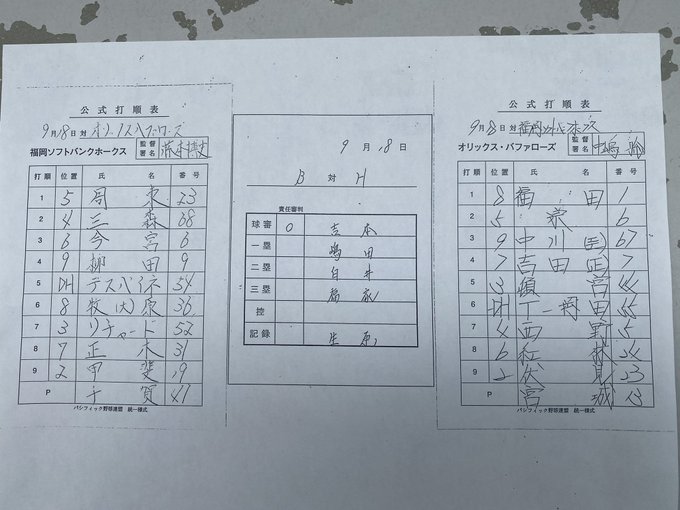 公式打順表
9月18日 対 オリックスバファローズ
福岡ソフトバンクホークス 監督署名
打順 位置 氏名 番号
1 5 周東 23
2 4 三森 68
3 6 今宮 6
4 9 柳田 9
5 DH デスパイネ 54
6 8 牧(大)原 36
7 3 リチャード 52
8 7 正木 31
9 2 甲斐 19
P 千賀 41
パシフィック野球連盟 統一様式
9月18日
B 対 H
責任審判
球審 O 吉本
一塁 嶋田
二塁 白井
三塁
控
記録 生原
公式打順表
9月18日 対 福岡ソフトバンク
オリックス・バファローズ 監督署名 中嶋 聡
打順 位置 氏名 番号
1 8 福田 1
2 5 宗 6
3 9 中川(圭) 67
4 7 吉田正 7
5 3 頓宮 44
6 DH T-岡田 55
7 4 西野 5
8 6 紅林 24
9 2 伏見 23
P 宮城 13
パシフィック野球連盟 統一様式